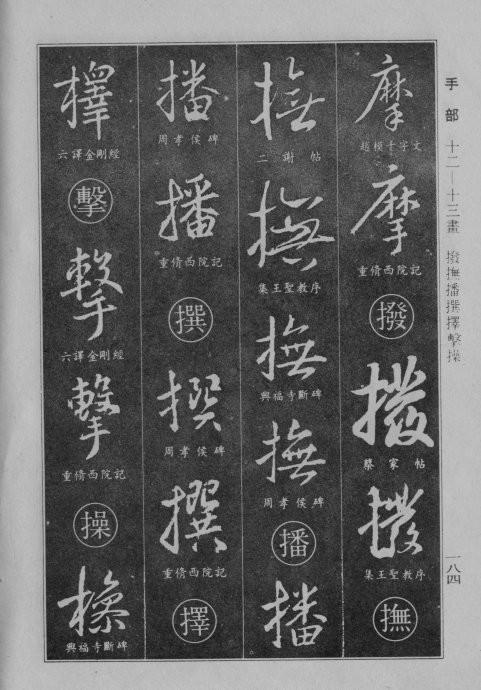 手部 十二—十三畫 撥撫播撰擇擊操
一八四
摩
趙模千字文
摩
重脩西院記
撥
撥
蔡家帖
撥
集王聖教序
撫
撫
二謝帖
撫
集王聖教序
撫
興福寺斷碑
撫
周孝侯碑
播
播
播
周孝侯碑
播
重脩西院記
撰
撰
周孝侯碑
撰
重脩西院記
擇
擇
六譯金剛經
擊
擊
六譯金剛經
擊
重脩西院記
操
操
興福寺斷碑